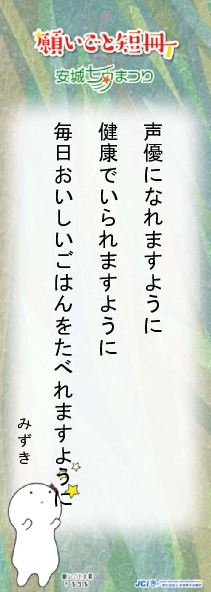 願いごと短冊
安城七夕まつり
声優になれますように
健康でいられますように
毎日おいしいごはんをたべれますように
みずき
JCI